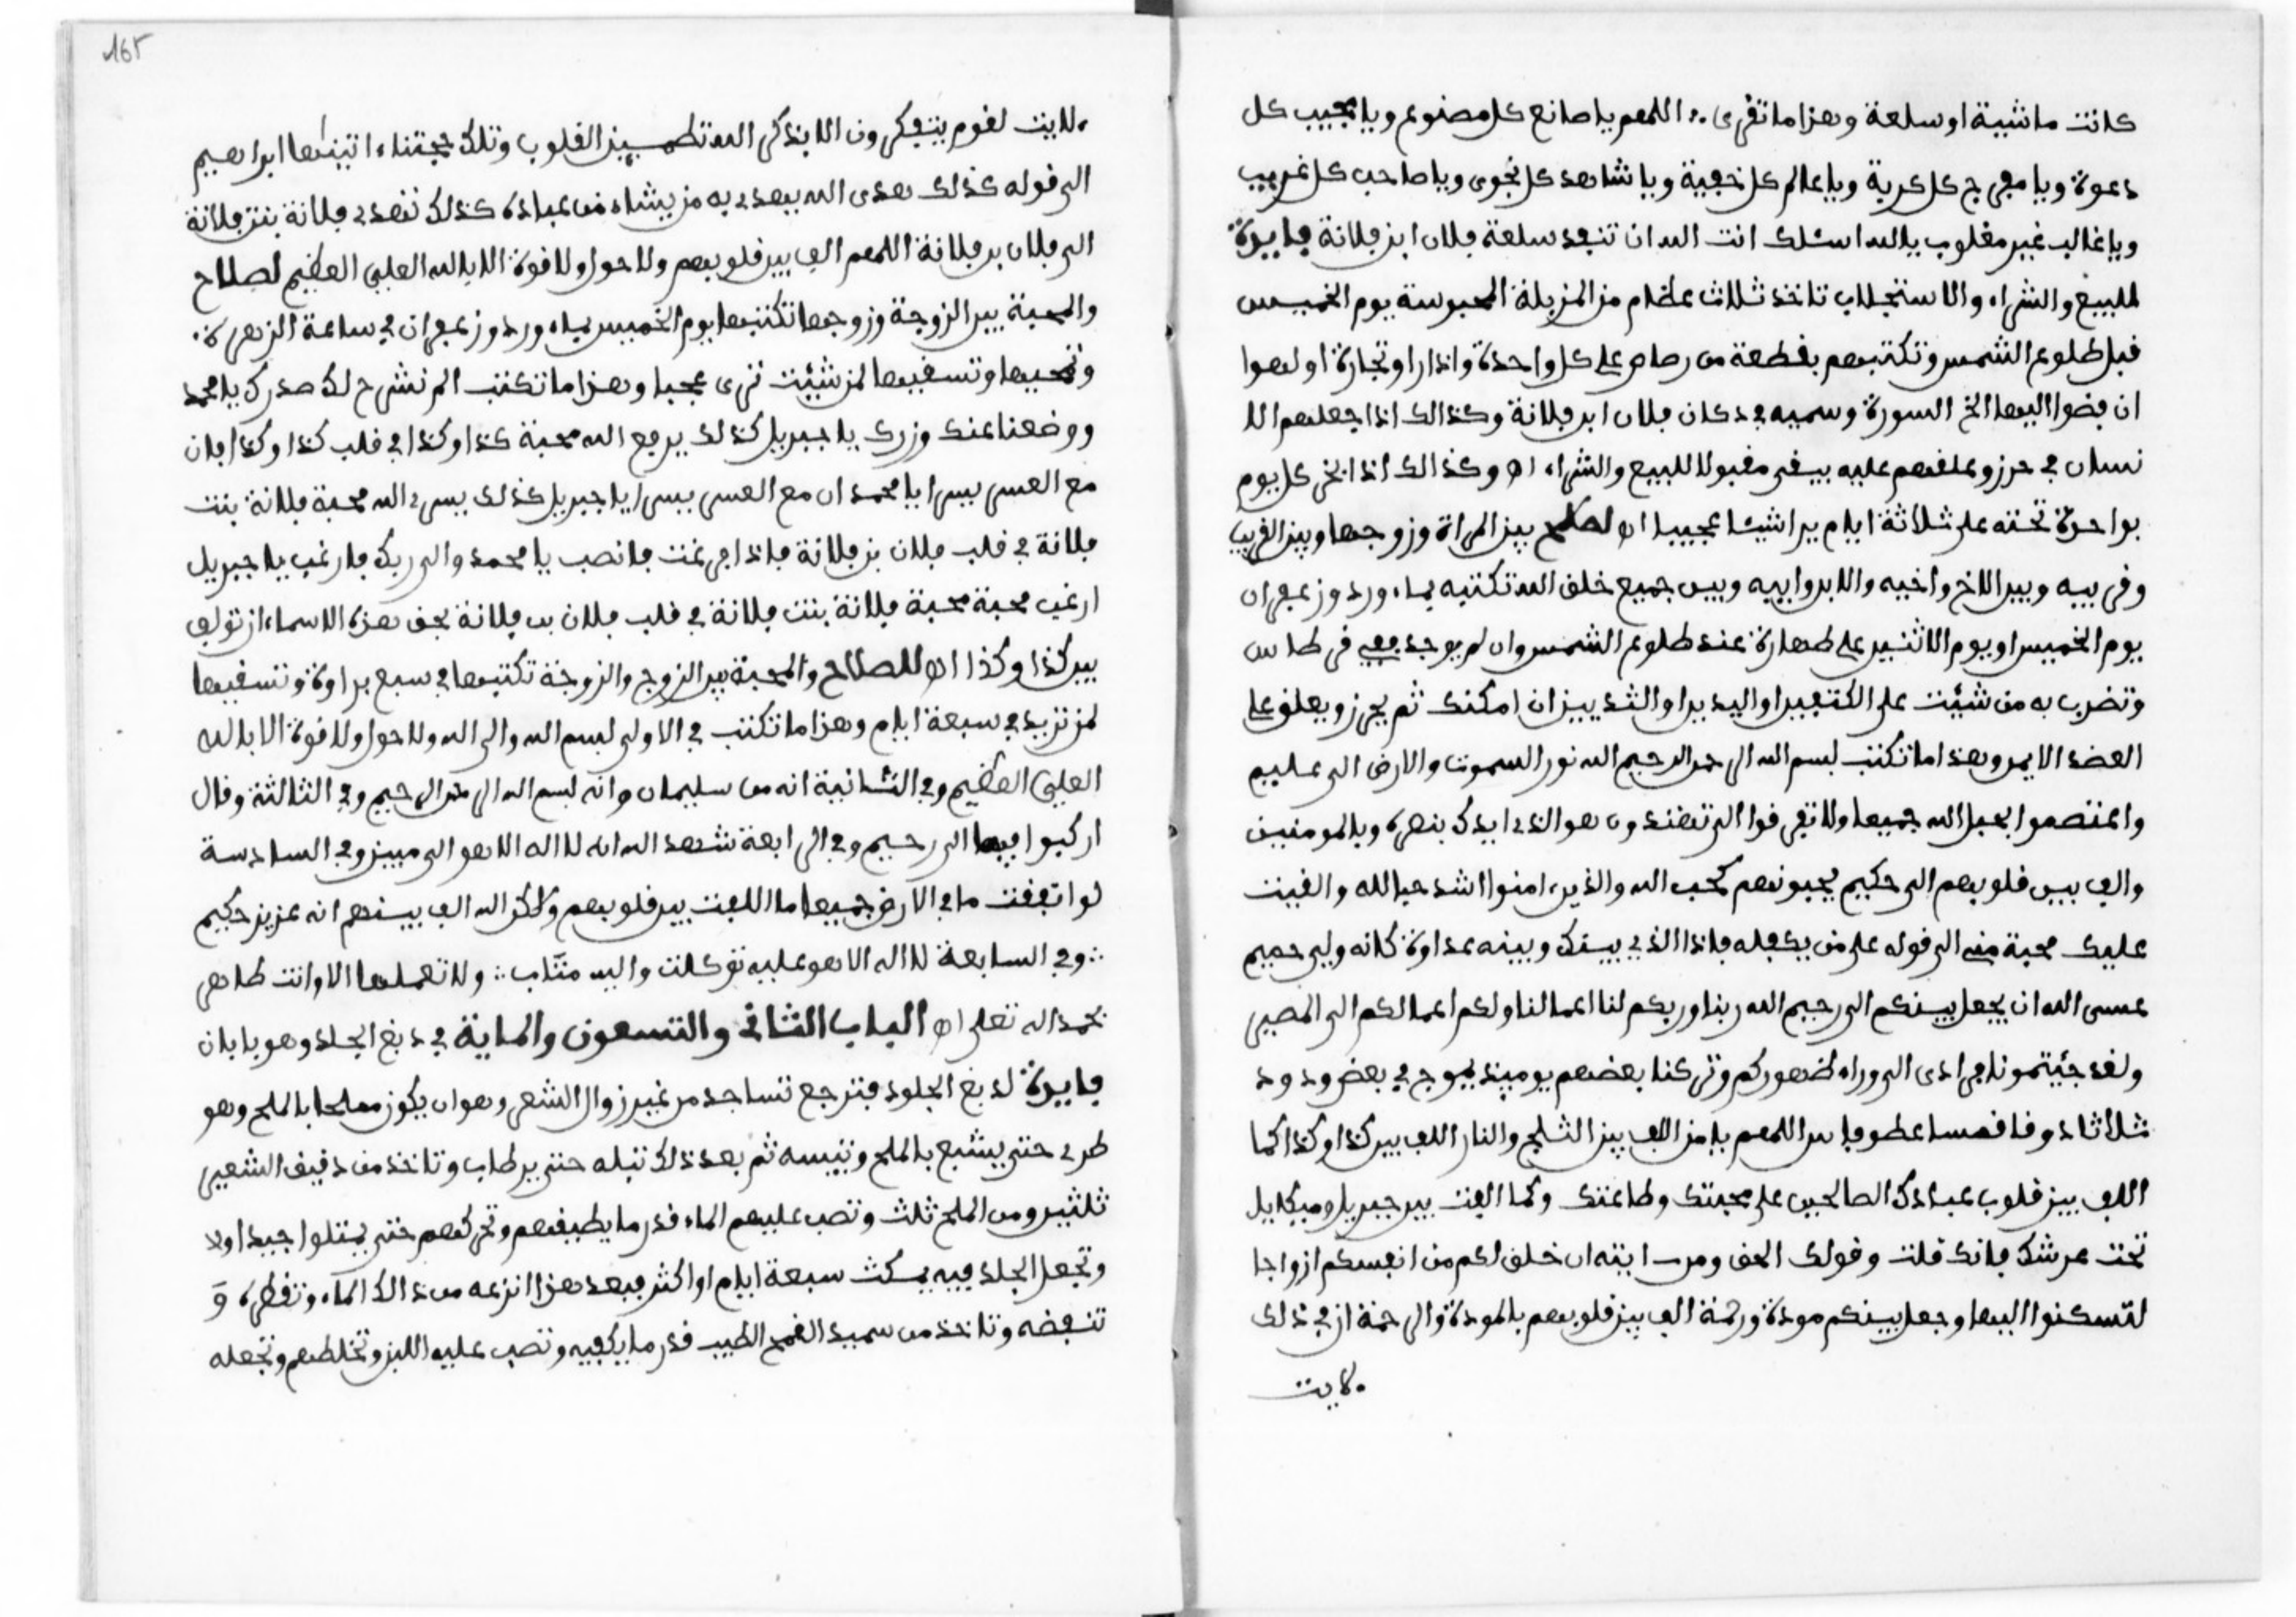 كانت ماشية او سلعة وهذا ما تقرى اللهم يا صانع كل مصنوع ويا مجيب كل
دعوة ويا مفرج كل كربة ويا عالم كل خفية ويا شاهد كل نجوى ويا صاحب كل غريب
ويا غالب غير مغلوب يا الله اسئلك انت الله ان تنفد سلعة فلان ابن فلانة فايدة
للبيع والشراء والاستجلاب تاخذ ثلاث عظام من المزبلة المحبوسة يوم الخميس
قبل طلوع الشمس وتكتبهم بقطعة من رصاص على كل واحدة واذا راو تجارة او لهوا
ان فضوا اليها الخ السورة وسميه في دكان فلان ابن فلانة وكذالك اذا جعلهم الا
نسان في حرز وعلقهم عليه يبقى مقبولا للبيع والشراء اه وكذالك اذا بخر كل يوم
بواحدة تحته على ثلاثة ايام يرا شيئا عجيبا اه لصلح بين المراة وزوجها وبين القريب
وقريبه وبين الاخ واخيه والابن وابيه وبين جميع خلق الله تكتبه بماء ورد وزعفران
يوم الخميس او يوم الاثنين على طهارة عند طلوع الشمس وان لم يوجد ففي قرطاس
وتضرب به من شئت على الكتفين او اليدين او الثديين ان امكنك ثم يحرز ويعلق على
العضد الايمن وهذا ما تكتب بسم الله الرحمن الرحيم الله نور السموت والارض الى عليم
واعتصموا بحبل الله جميعا ولا تفرقوا الى تهتدون هو الذي ايدك بنصره وبالمومنين
والف بين قلوبهم الى حكيم يحبونهم كحب الله والذين ءامنوا اشد حبا لله والقيت
عليك محبة مني الى قوله على من يكفله فاذا الذي بينك وبينه عداوة كانه ولي حميم
عسى الله ان يجعل بينكم الى رحيم الله ربنا وربكم لنا اعمالنا ولكم اعمالكم الى المصير
ولقد جئتمونا فرادى الى وراء ظهوركم وتركنا بعضهم يوميذ يموج في بعض ودود
ثلاثا اللهم يا من الف بين الثلج والنار الف بين كذا وكذا كما
الف بين قلوب عبادك الصالحين على محبتك وطاعتك وكما الفت بين جبريل وميكايل
تحت عرشك فانك قلت وقولك الحق ومن ءايته ان خلق لكم من انفسكم ازواجا
لتسكنوا اليها وجعل بينكم مودة ورحمة الف بين قلوبهم بالمودة والرحمة ان في ذلك
ءلايت
165
ءلايت لقوم يتفكرون الا بذكر الله تطمين القلوب وتلك حجتنا ءاتينها ابراهيم
الى قوله كذلك هدى الله يهدي به من يشاء من عباده كذلك تهدي فلانة بنت فلانة
الى فلان بن فلانة اللهم الف بين قلوبهم ولا حول ولا قوة الا بالله العلي العظيم لصلاح
والمحبة بين الزوجة وزوجها تكتبها يوم الخميس بماء ورد وزعفران في ساعة الزهرة
وتمحيها وتسقيها لمن شئت ترى عجبا وهذا ما تكتب الم نشرح لك صدرك يا محمد
ووضعنا عنك وزرك يا جبريل كذلك يرفع الله محبة كذا وكذا في قلب كذا وكذا فان
مع العسر يسرا يا محمد ان مع العسر يسرا يا جبريل كذلك يسري الله محبة فلانة بنت
فلانة في قلب فلان بن فلانة فاذا فرغت فانصب يا محمد والى ربك فارغب يا جبريل
ارغب محبة محبة فلانة بنت فلانة في قلب فلان بن فلانة بحق هذه الاسماء ان تولف
بين كذا وكذا اه للصلاح والمحبة بين الزوج والزوجة تكتبها في سبع براوة وتسقيها
لمن تريد في سبعة ايام وهذا ما تكتب في الاولى بسم الله والى الله ولا حول ولا قوة الا بالله
العلي العظيم وفي الثانية انه من سليمان وانه بسم الله الرحمن الرحيم وفي الثالثة وقال
اركبوا فيها الى رحيم وفي الرابعة شهد الله انه لا اله الا هو الى مبين وفي السادسة
لو انفقت ما في الارض جميعا ما اللفت بين قلوبهم ولكن الله الف بينهم انه عزيز حكيم
وفي السابعة لا اله الا هو عليه توكلت واليه متاب ولا تعملها الا وانت طاهر
بحمد الله تعلى اه الباب الثاني والتسعون والماية في دبغ الجلد وهو بابان
فايدة لدبغ الجلود فترجع تساجد من غير زوال الشعر وهو ان يكون مملحا بالملح وهو
طري حتى يشبع بالملح وتيبسه ثم بعد ذلك تبله حتى يرطاب وتاخذ من دقيق الشعير
ثلثين ومن الملح ثلث وتصب عليهم الماء قدر ما يطيبهم وتحركهم حتى يمتلوا جيدا اولا
وتجعل الجلد فيه يمكث سبعة ايام او اكثر فبعد هذا انزعه من ذالك الماء وتقطره و
تنفضه وتاخذ من سميد القمح الطيب قدر ما يكفيه وتصب عليه اللبن وتخلطهم وتجعله